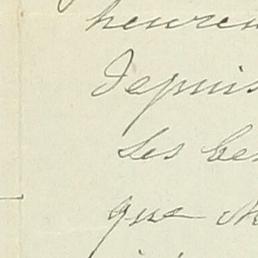 heureu
Depuis
Les be
que M